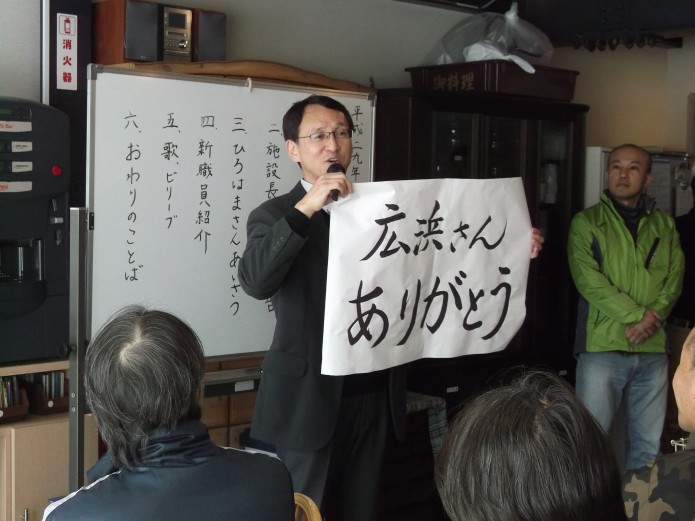 平成二九年
二、施設長
三、ひろはまさんあいさつ
四、新職員紹介
五、歌、ビリーブ
六、おわりのことば
広浜さん
ありがとう
消火器
御料理